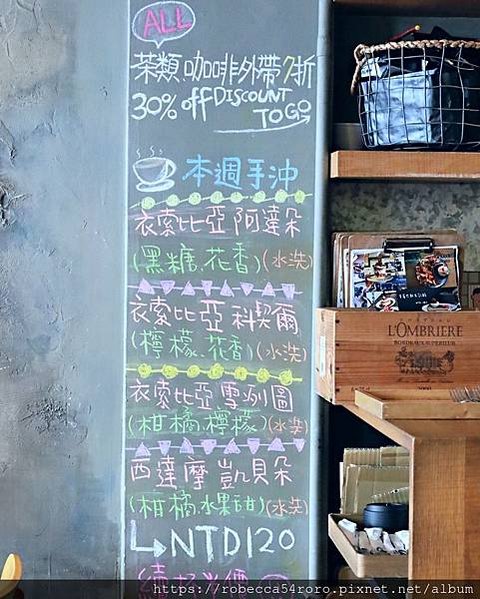 ALL
茶類咖啡外帶7折
30% off DISCOUNT
TO GO
本週手沖
衣索比亞 阿達朵
(黑糖、花香)(水洗)
衣索比亞 科契爾
(檸檬、花香)(水洗)
衣索比亞 雪冽圖
(柑橘、檸檬)(水洗)
西達摩 凱貝朵
(柑橘、水果甜)(水洗)
NTD120
L'OMBRIERE
BORDEAUX SUPERIEUR
https://robecca54roro.pixnet.net/album